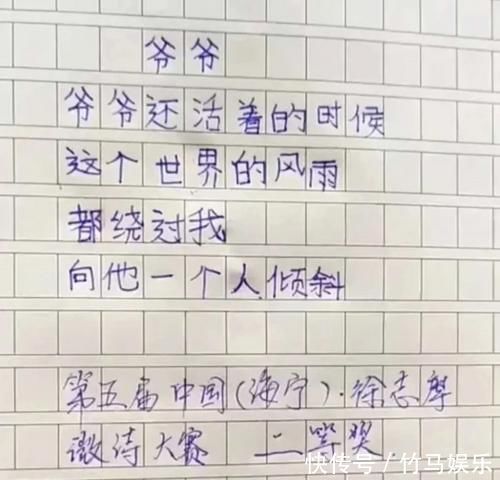 爷爷
爷爷还活着的时候
这个世界的风雨
都绕过我
向他一个人倾斜
第五届中国(海宁)·徐志摩
微诗大赛 二等奖
快传号/竹马娱乐